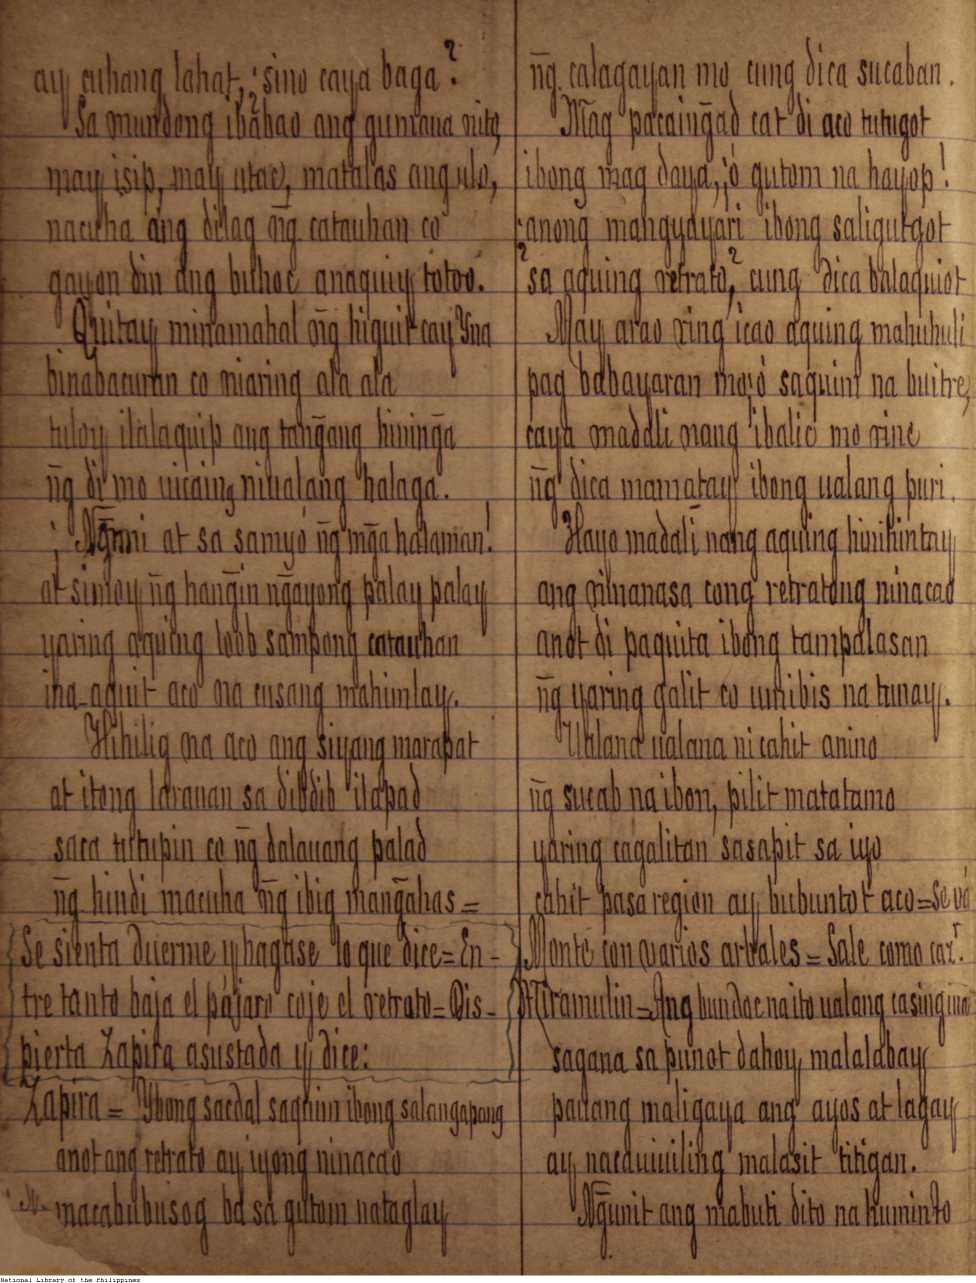 ay cuhang lahat, ¿sino caya baga?
Sa mundong ibabao ang gumaua nito,
may isip, may utac, matalas ang ulo,
nacuha ang dilag n̄g catauhan co
gayon din ang buhoc anaquiy totoo.
Quitay minamahal n̄g higuit cay Yna
binabacuran co niaring ala ala
tuloy ilalaquip ang tan̄gang hinin̄ga
n̄g di mo uicaing niualang halaga.
¡N̄guni at sa samyo n̄g mn̄ga halaman!
at simoy n̄g han̄gin n̄gayong palay palay
yaring aquing loob sampong catauhan
ina-aquit aco na cusang mahimlay.
Hihilig na aco ang siyang marapat
at itong larauan sa dibdib ilapad
saca tutupin co n̄g dalauang palad
n̄g hindi macuha n̄g ibig man̄gahas=
Se sienta duerme y hagase lo que dice=En-
tre tanto baja el pájaro coje el retrato=Dis-
pierta Zapira asustada y dice:
Zapira= Ybong sacdal saquim ibong salangapang
anot ang retrato ay iyong ninacao
macabubusog ba sa gutom nataglay
n̄g calagayan mo cung dica sucaban.
Mag pacain̄gad cat di aco tutugot
ibong mag daya, ¡ó gutom na hayop!
¿anong mangyayari ibong saligutgot
sa aquing retrato? cung dica balaquiot
May arao ring icao aquing mahuhuli
pag babayaran mo ¡ó saquim na buitre,
caya madali nang ibalic mo rine
n̄g dica mamatay ibong ualang puri.
Hayo madali nang aquing hinihintay
ang ninanasa cong retratong ninacao
anot di paquita ibong tampalasan
n̄g yaring galit co umibis na tunay.
Uala na uala na ni cahit anino
n̄g sucab na ibon, pilit matatamo
yaring cagalitan sasapit sa iyo
cahit pasa region ay bubuntot aco=Se vá
Monte con varios arbales=Sale como caz.r
Miramulin=Ang bundoc na ito ualang casing
sagana sa punot dahoy, malalabay
paUang maligaya ang ayos at lagay
ay nacauiuiling malasit titigan.
N̄gunit ang mabuti dito na huminto